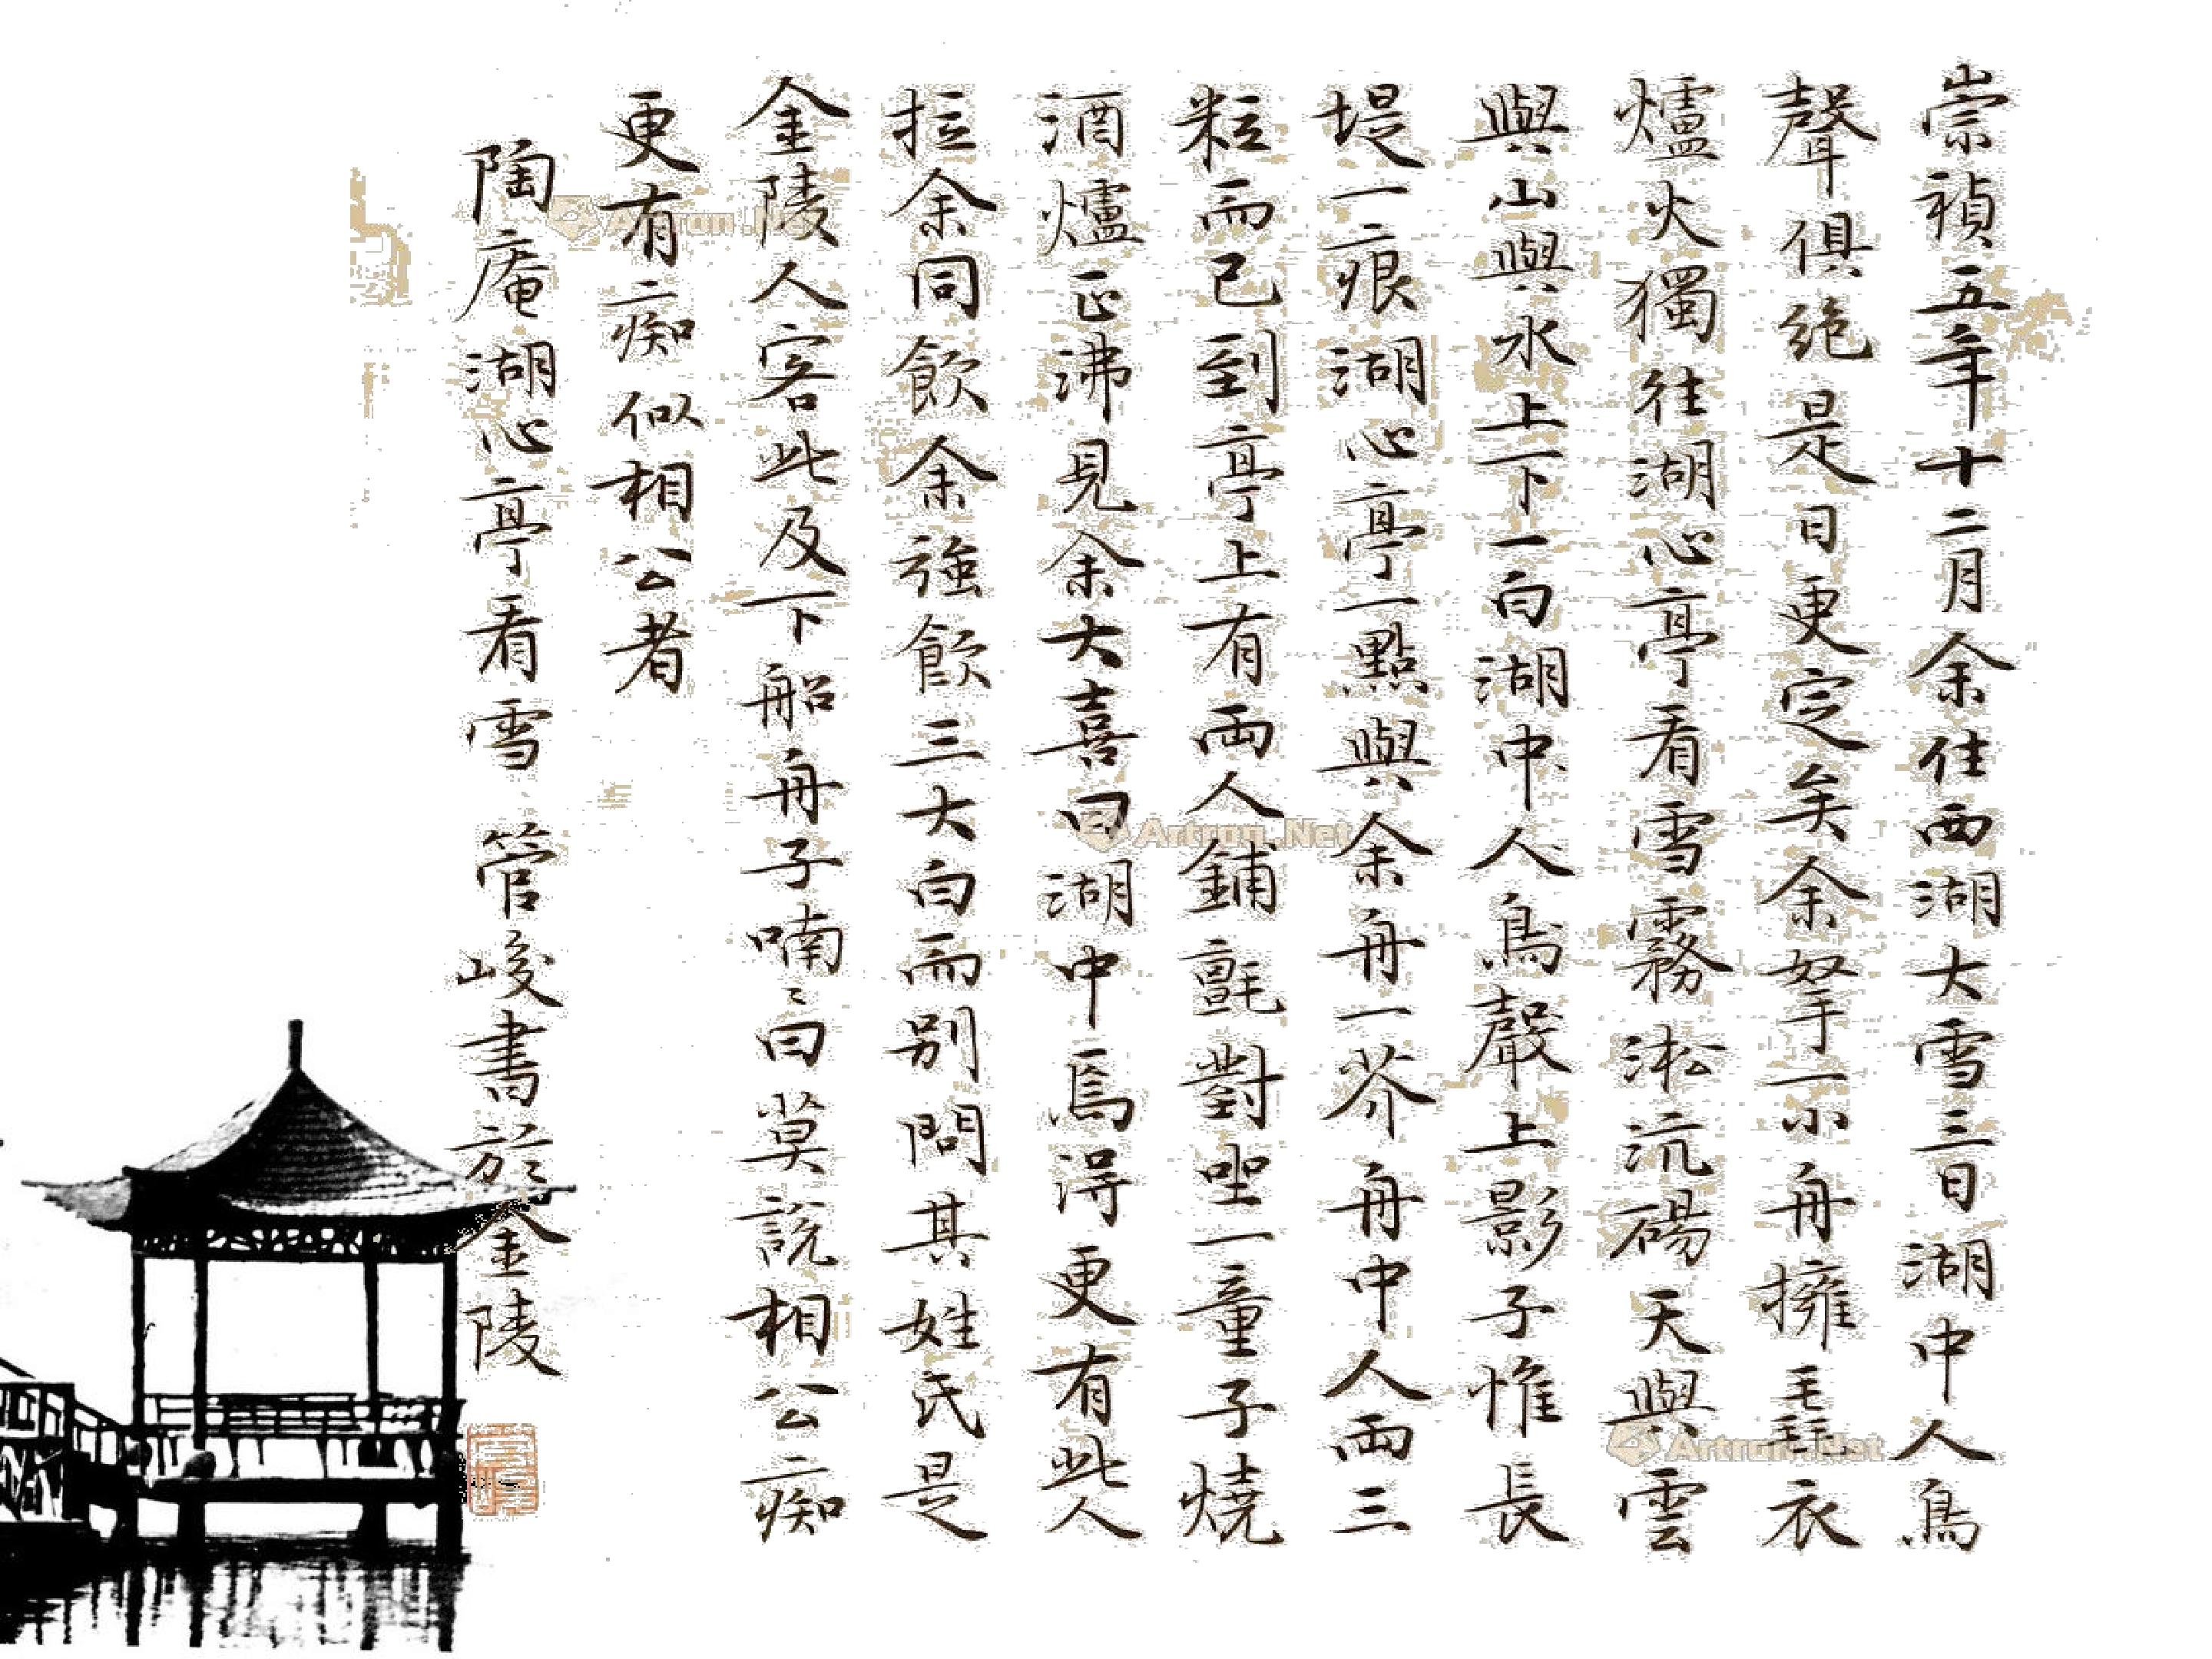 崇禎五年十二月余住西湖大雪三日湖中人鳥
聲俱絶是日更定矣余拏一小舟擁毳衣
爐火獨往湖心亭看雪霧淞沆碭天與雲
與山與水上下一白湖中人鳥聲上影子惟長
堤一痕湖心亭一點與余舟一芥舟中人兩三
粒而已到亭上有兩人鋪氈對坐一童子燒
酒爐正沸見余大喜曰湖中焉得更有此人
拉余同飲余強飲三大白而别問其姓氏是
金陵人客此及下船舟子喃〻曰莫說相公痴
更有痴似相公者
陶庵湖心亭看雪 管峻書於金陵
Artron.Net
Artron.Net
Artron.Net